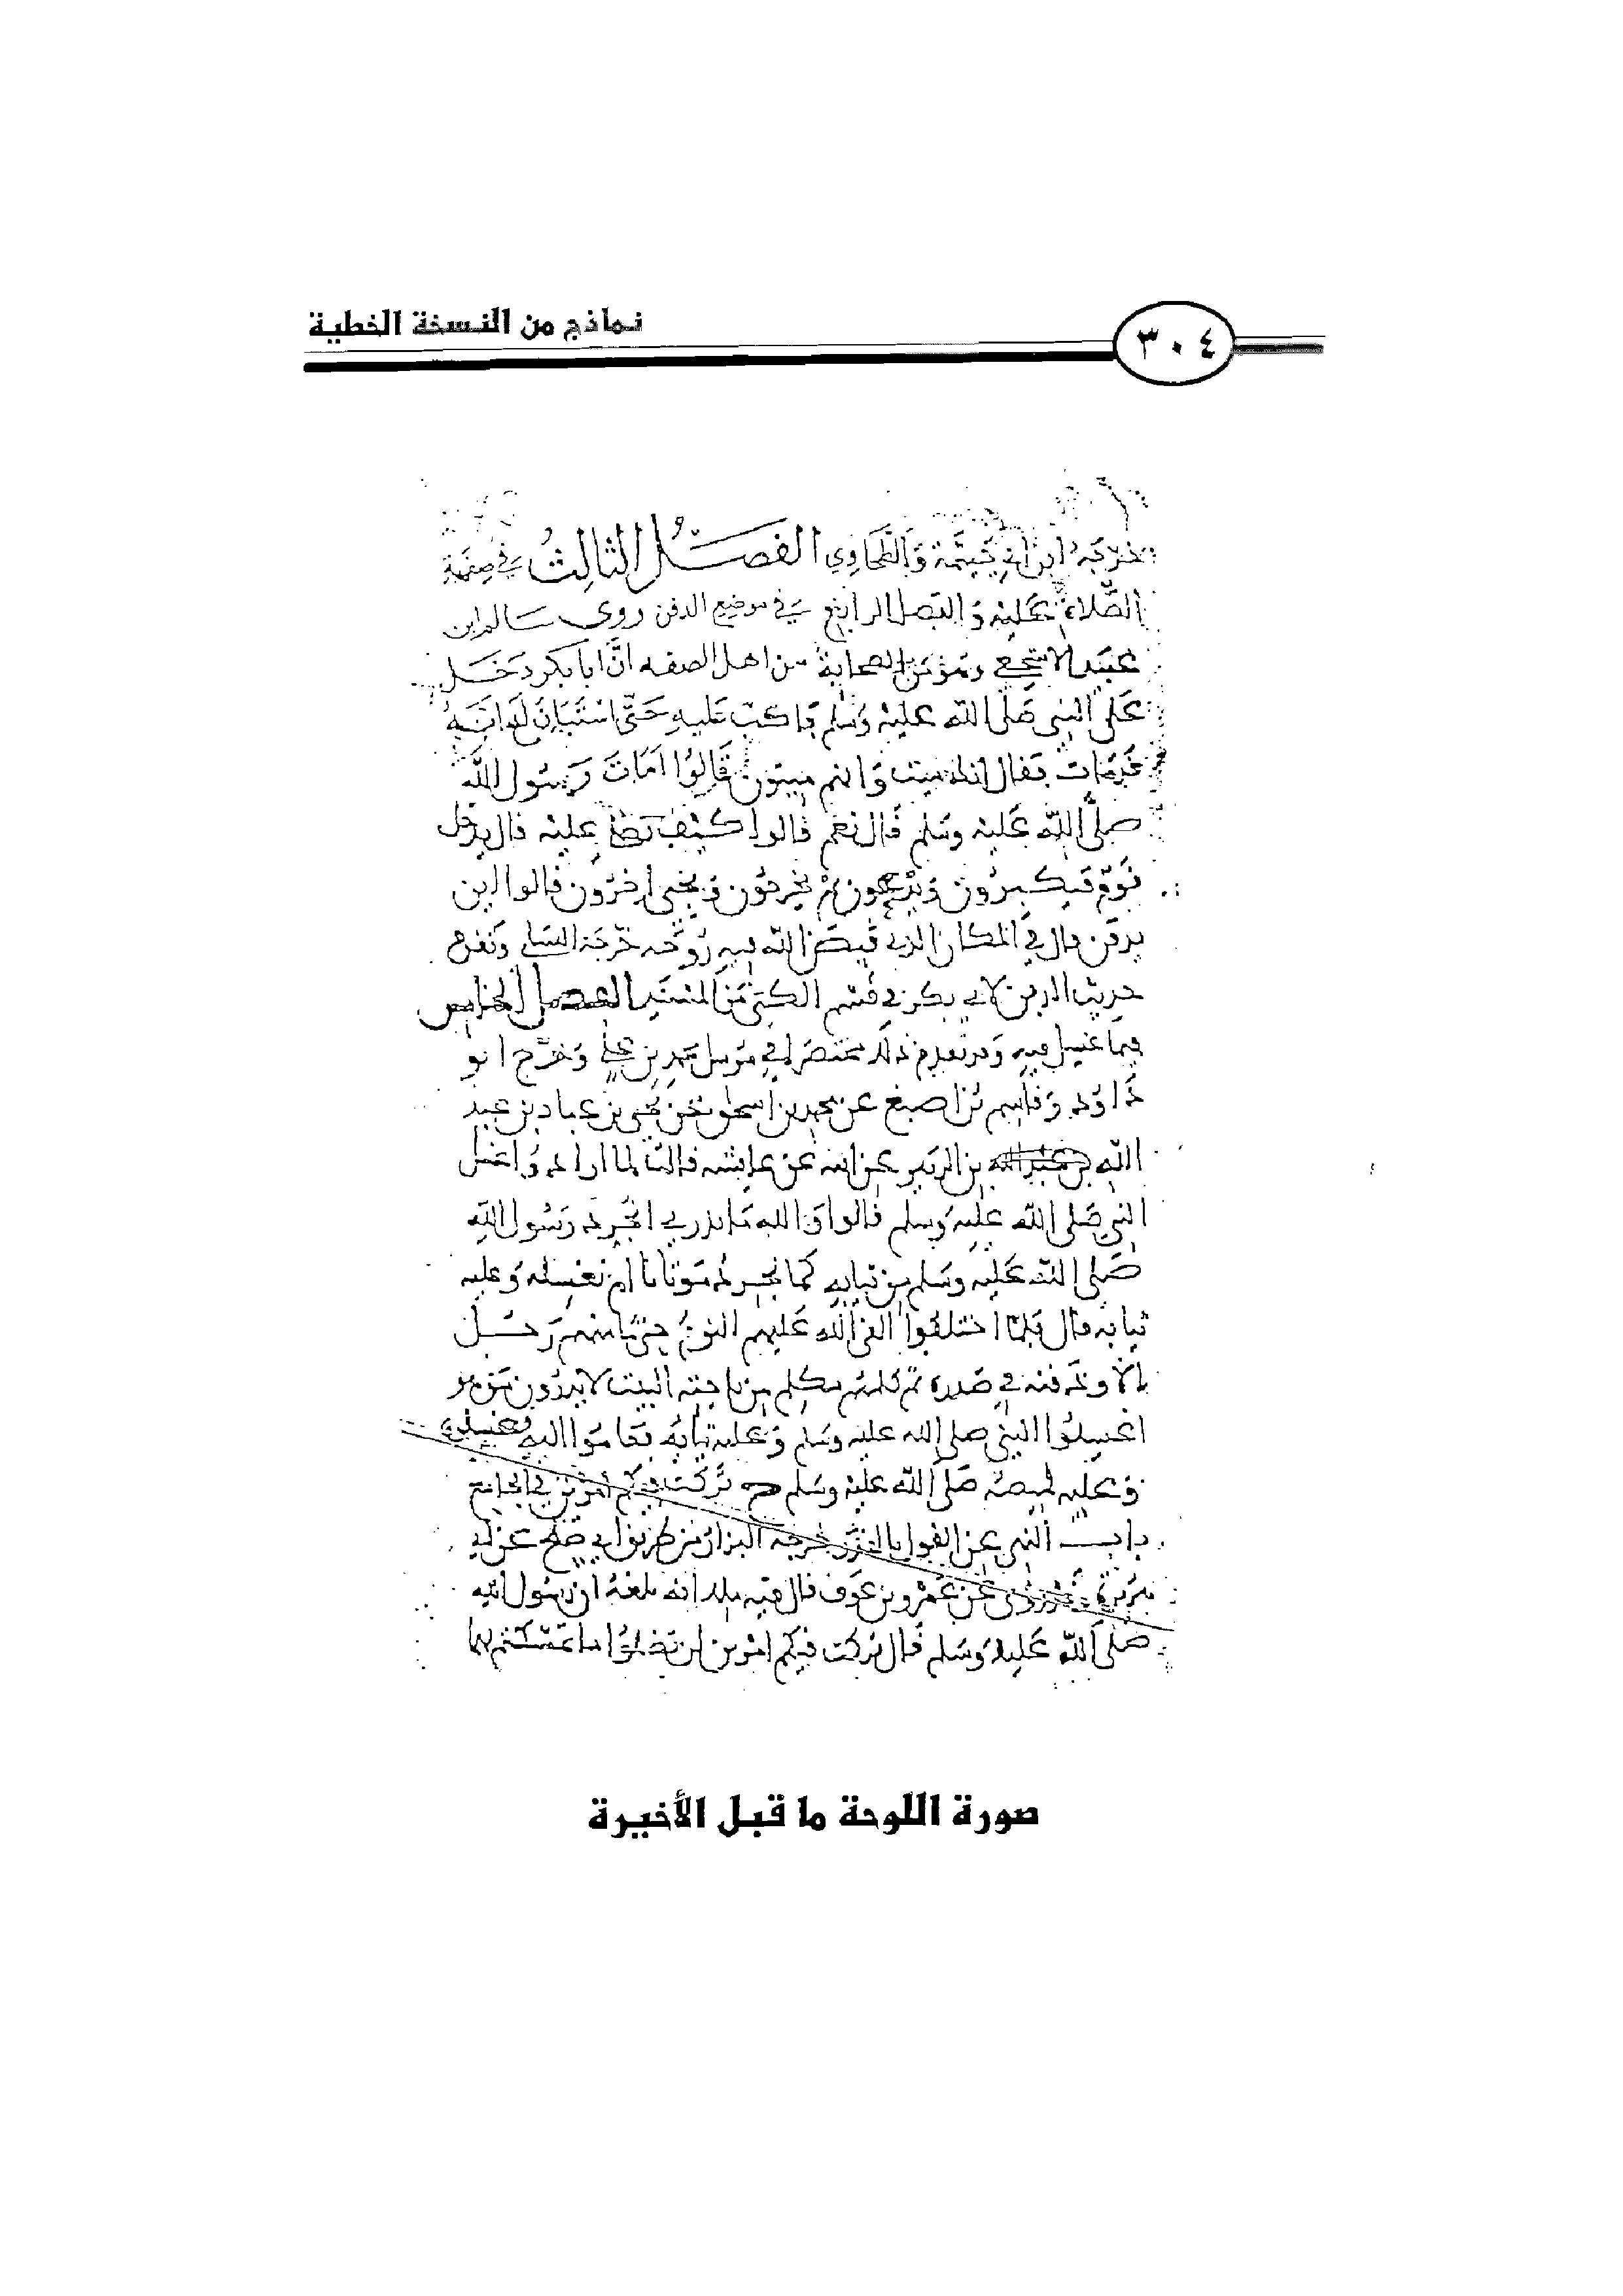 نماذج من النسخة الخطية
٣٠٤
خرجه ابن أبي خيثمة والطحاوي الفصل الثالث في صفة
الصلاة عليه والفصل الرابع في موضع الدفن روى سالم ابن
عبيد الاشجعي وهو من الصحابة من اهل الصفه ان ابا بكر دخل
على النبي صلى الله عليه وسلم فاكب عليه حتى استبان له انه
قد مات فقال انك ميت وانهم ميتون قالوا امات رسول الله
صلى الله عليه وسلم قال نعم قالوا كيف نصلي عليه قال يدخل
قوم فيكبرون ويدعون ثم يخرجون ويجي اخرون قالوا اين
يدفن قال في المكان الذي قبض الله فيه روحه خرجه النساي وتقدم
حديث الدفن لابي بكر في قسم الكنى من المسند الفصل الخامس
فيما غسل فيه وقد تقدم ذلك مختصرا في مرسل محمد بن علي وخرج ابو
داود وقاسم بن اصبغ عن محمد بن اسحاق عن يحيى بن عباد بن عبد
الله بن الزبير عن ابيه عن عايشه قالت لما ارادوا غسل
النبي صلى الله عليه وسلم قالوا والله ما ندري انجرد رسول الله
صلى الله عليه وسلم من ثيابه كما نجرد موتانا ام نغسله وعليه
ثيابه قال فلما اختلفوا القى الله عليهم النوم حتى ما منهم رجل
الا وذقنه في صدره ثم كلمهم مكلم من ناحية البيت لا يدرون من هو
اغسلوا النبي صلى الله عليه وسلم وعليه ثيابه فقاموا اليه فغسلوه
وعليه قميصه صلى الله عليه وسلم تركت فيكم امرين في الجامع
باب النهي عن القول بالقدر خرجه البزار من طريق ابي صلح عن ابي
هريرة عن عمرو بن عوف قال فيه ملك انه بلغه ان رسول الله
صلى الله عليه وسلم قال تركت فيكم امرين لن تضلوا ما تمسكتم بهما
صورة اللوحة ما قبل الأخيرة